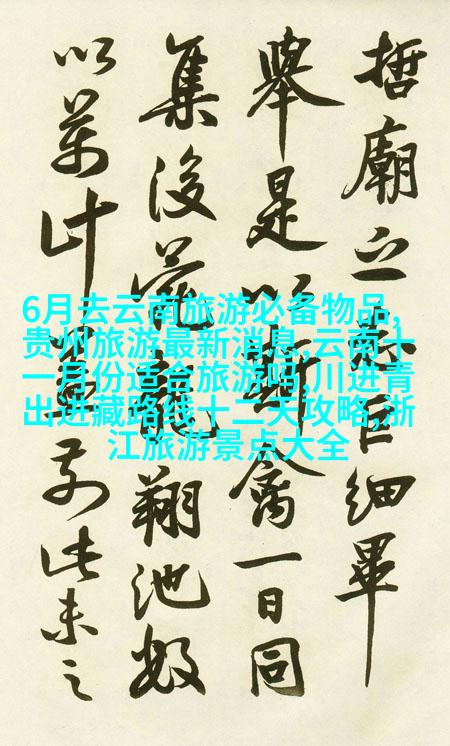 哲廟之臣細畢
舉是以斯禽一日同
集後龍翔池
以萬計前此未之
6月去云南旅游必备物品,
贵州旅游最新消息,云南十
一月份适合旅游吗,川进青
出进藏路线十二天攻略,浙
江旅游景点大全